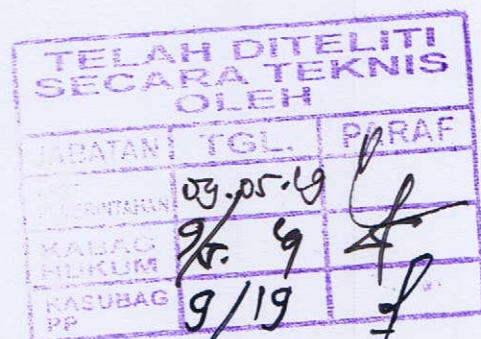 TELAH DITELITI
SECARA TEKNIS
OLEH
JABATAN TGL. PARAF
09.05.19
KABAG
HUKUM
KASUBAG
PP
9/19